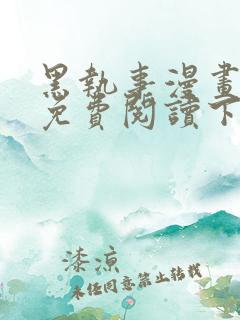 黑執事漫畫
免費閱讀下
漆涼
未經同意禁止轉載